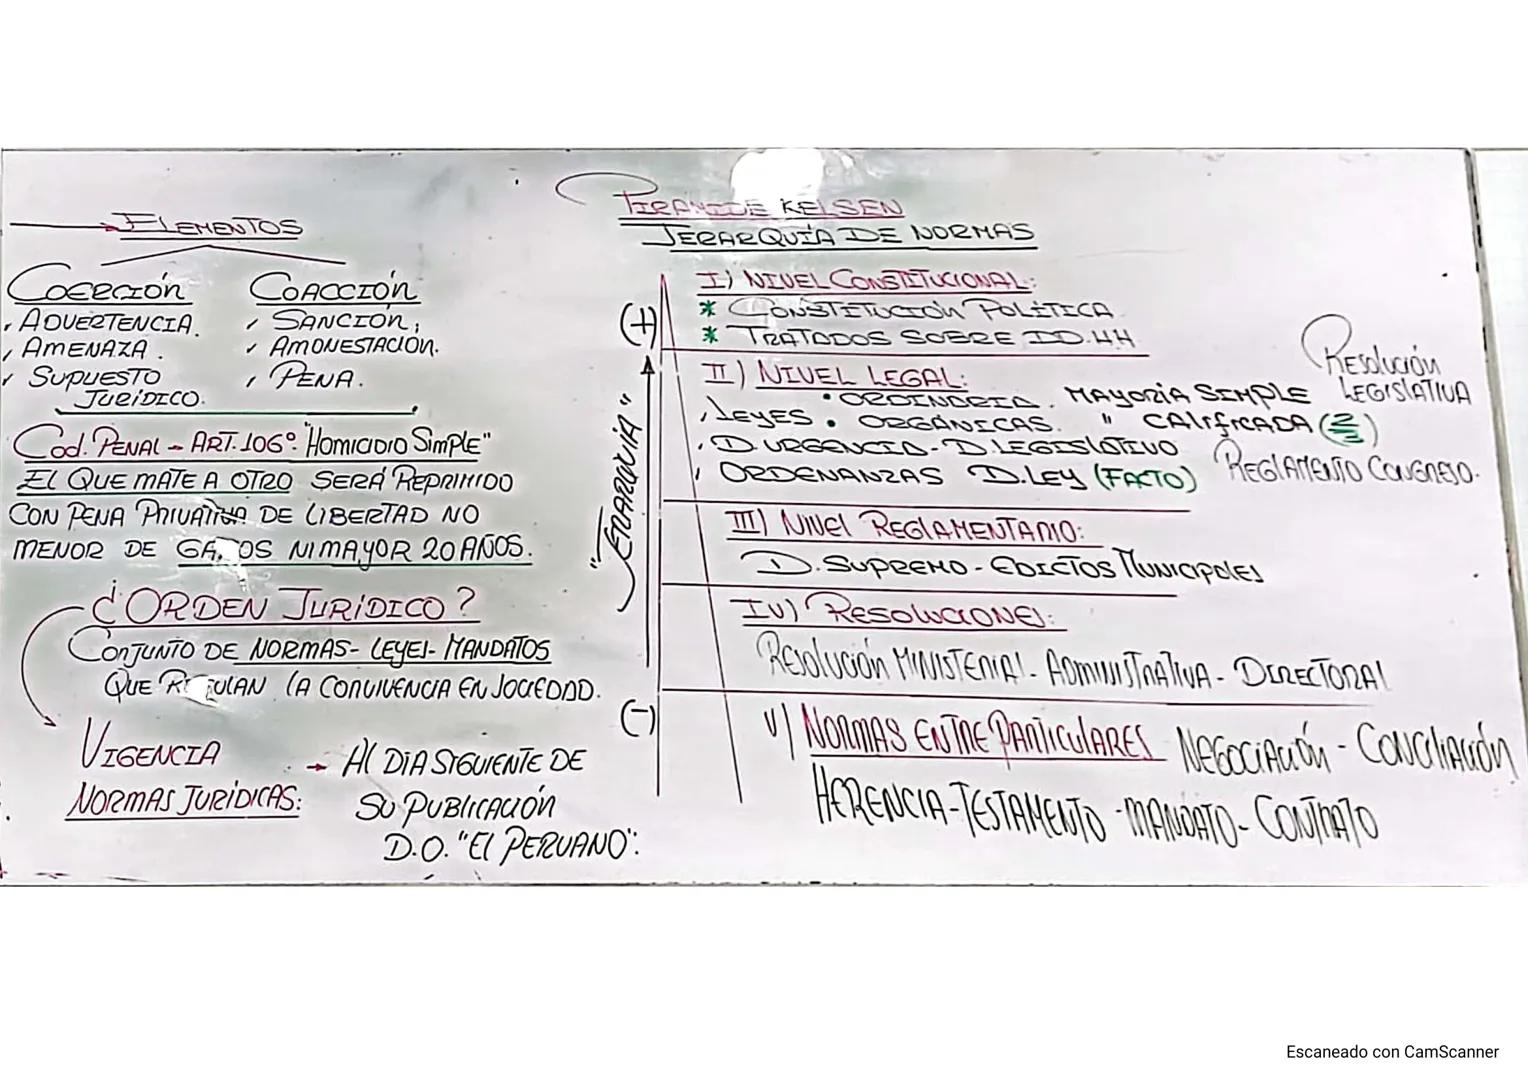 ELEMENTOS
COERCIÓN
ADVERTENCIA.
AMENAZA.
SUPUESTO
JURÍDICO.
COACCIÓN
SANCIÓN,
AMONESTACIÓN.
PENA.
Cod. PENAL - ART. 106° "Homicidio Simple"
EL QUE MATE A OTRO SERÁ REPRIMIDO
CON PENA PRIVATIVA DE LIBERTAD NO
MENOR DE NI MAYOR 20 AÑOS.
¿ORDEN JURÍDICO?
CONJUNTO DE NORMAS- LEYES- MANDATOS
QUE REGULAN LA CONVIVENCIA EN SOCIEDAD.
VIGENCIA
NORMAS JURÍDICAS:
→ Al DIA SIGUIENTE DE
SU PUBLICACIÓN
D.O. "El PERUANO":
PIRAMIDE KELSEN
JERARQUÍA DE NORMAS
(+)
"JERARQUÍA"
(-)
I) NIVEL CONSTITUCIONAL:
* CONSTITUCIÓN POLÍTICA
* TRATADOS SOBRE DD.HH
II) NIVEL LEGAL:
• ORDINARIA. MAYORÍA SIMPLE
LEYES • ORGÁNICAS. " CALIFICADA
D. URGENCIA - D. LEGISLATIVO
ORDENANZAS D. LEY (FACTO)
RESOLUCIÓN
LEGISLATIVA
REGLAMENTO CONGRESO.
III) NIVEL REGLAMENTARIO:
D. SUPREMO - EDICTOS MUNICIPALES
IV) RESOLUCIONES:
RESOLUCIÓN MINISTERIAL - ADMINISTRATIVA - DIRECTORAL
V) NORMAS ENTRE PARTICULARES NEGOCIACIÓN - CONCILIACIÓN
HERENCIA - TESTAMENTO - MANDATO - CONTRATO
Escaneado con CamScanner